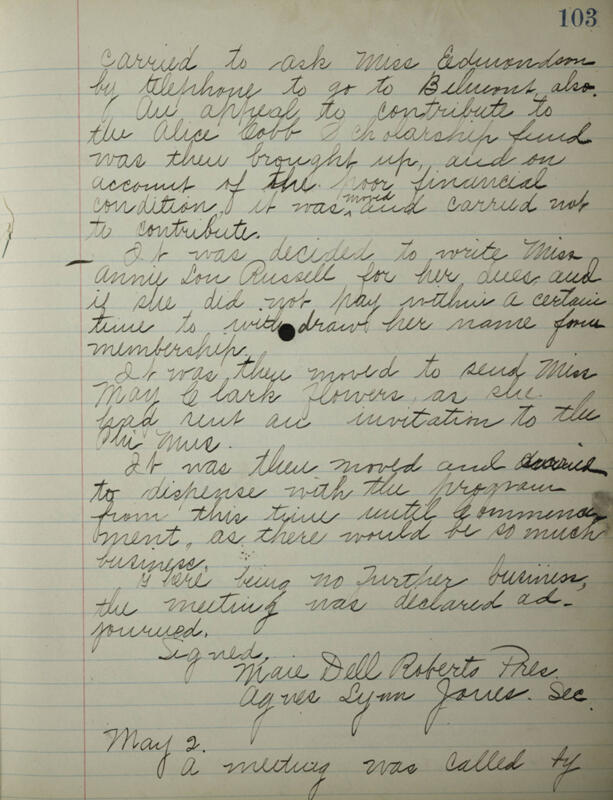 103
carried to ask Miss Edmondson
by telephone to go to Belmont also.
An appeal to contribute to
the Alice Cobb Scholarship fund
was then brought up, and on
account of the poor financial
condition, it was moved and carried not
to contribute.
It was decided to write Miss
Annie Lou Russell for her dues, and
if she did not pay within a certain
time to withdraw her name from
membership.
It was then moved to send Miss
May Clark flowers, as she
had sent an invitation to the
Phi Mus.
It was then moved and carried
to dispense with the program
from this time until Commence-
ment, as there would be so much
business.
There being no further business,
the meeting was declared ad-
journed.
Signed,
Maie Dell Roberts Pres.
Agnes Lynn Jones. Sec.
May 2.
A meeting was called by